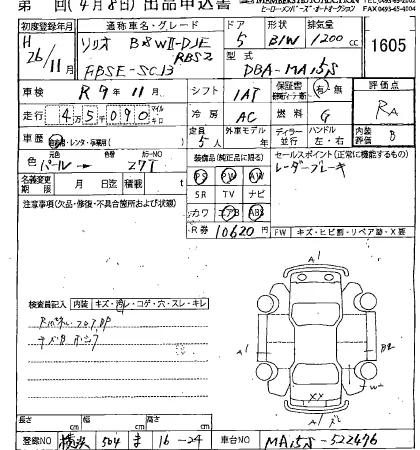 第 回(4月8日)出品申込書
ヒーローメンバーズ・オートオークション FAX 0493-45-4004
初度登録年月 通称車名・グレード ドア 形状 排気量
H 26/11月 ソリオ 5 B/W 1200 cc 1605
RBS2
型式
DBA-MA15S
車検 R 9年 11月 シフト 1AT 保証書 有・無 評価点
走行 4万5千090 マイル キロ 冷房 AC 燃料 G RA
車歴 自家用・レンタ・事業用 定員 5人 外車モデル 年 ディーラー 並行 ハンドル 左・右 内装評価 B
元色 色替 カラーNO
色 パール → Z7T
装備品(純正品に限る) セールスポイント(正常に機能するもの)
PS PW AW レーダーブレーキ
名義変更期限 月 日迄 積載 t
SR TV ナビ
注意事項(欠品・修復・不具合箇所および状態)
カワ エアB ABS
R券 10620円 FW キズ・ヒビ割・リペア跡・X要
検査員記入 内装 キズ・汚レ・コゲ・穴・スレ・キレ
A1
A1
B2
W
XX
長さ cm 幅 cm 高さ cm
登録NO 横浜 504 ま 16-24 車台NO MA15S-522476